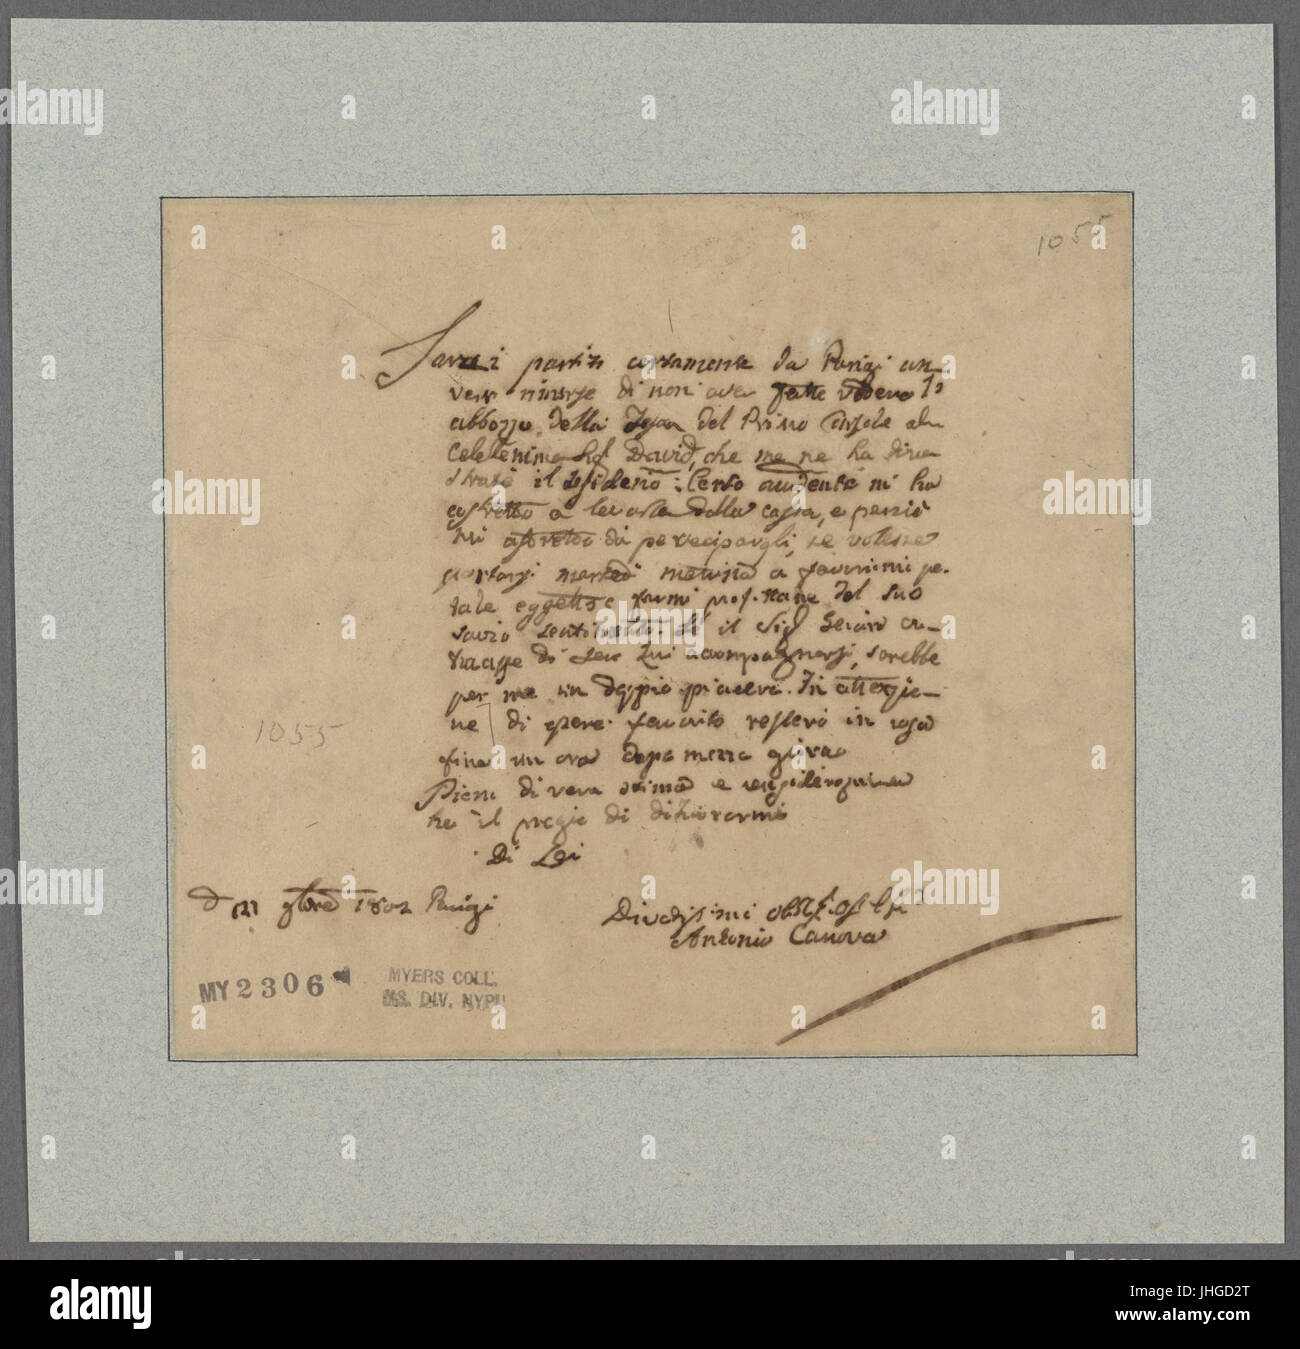 1055
partir certamente da Parigi con
vero di non aver fatto vedere lo
abbozzo della Testa del Primo Console al
celeberrimo Sigr David, che me ne ha dimo
strato il desiderio: Certo accidente mi ha
costretto a levarla dalla cassa, e perciò
mi affretto di parteciparli, se volesse
portarsi martedì mattina a favorirmi pe.
tale oggetto e farmi del suo
savio sentimento. Se il Sigr
di seco Lui accompagnarsi, sarebbe
per me un doppio piacere. In attenzio-
ne di essere favorito resterò in casa
fino un ora dopo mezzo giorno
Pieno di vera stima e
ho il pregio di dichiararmi
Di Lei
1055
1802 Parigi
Antonio Canova
MY 2306
MYERS COLL.
MS. DIV. NYPL
alamy
a
alamy
JHGD2T
www.alamy.com